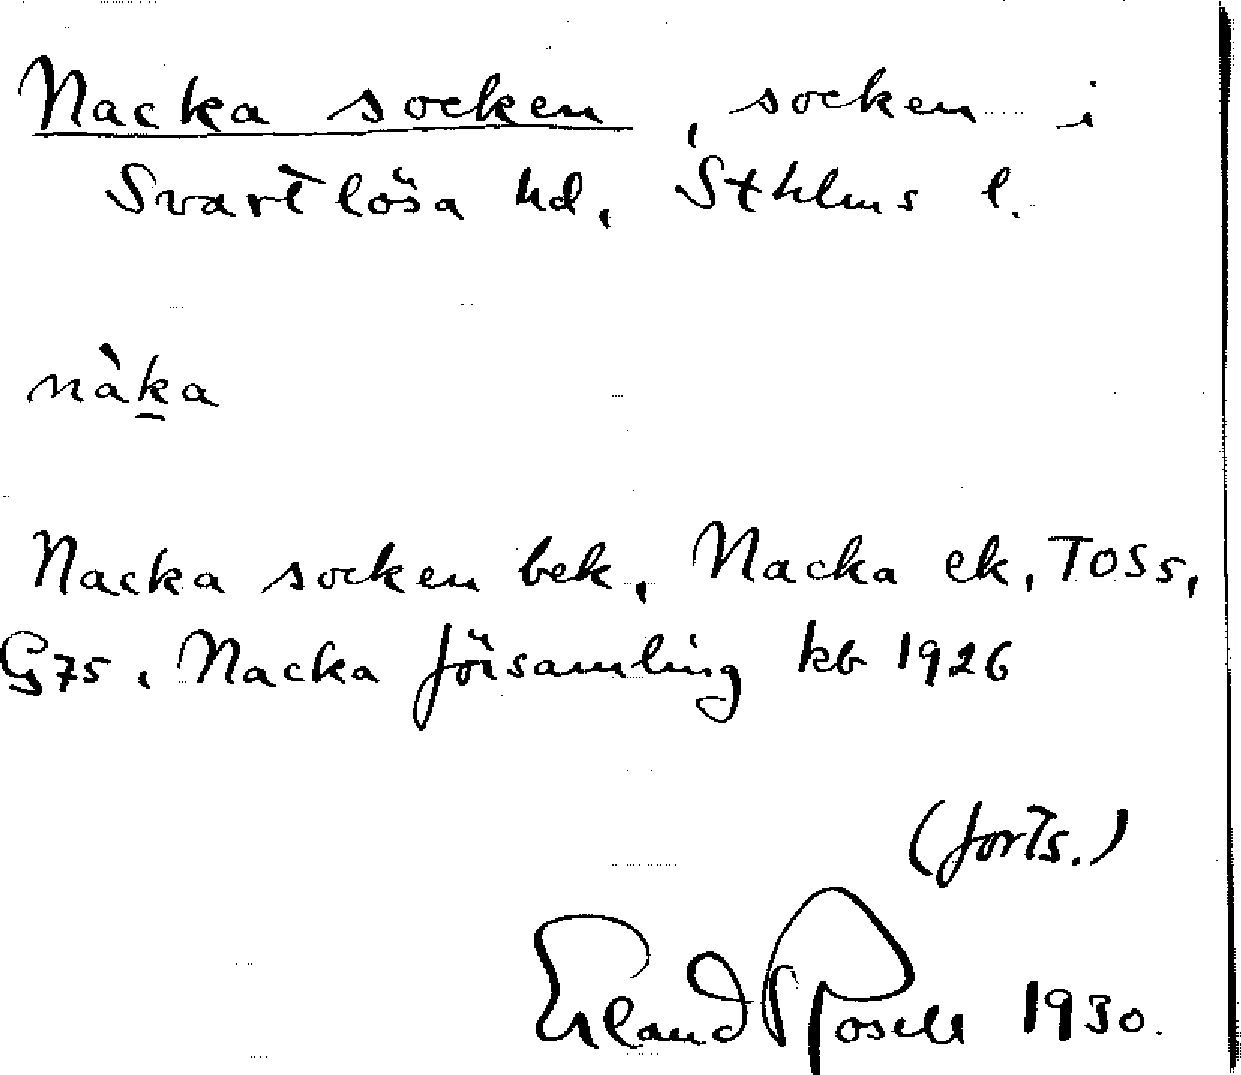 Nacka socken, socken i
Svartlösa hd, Sthlms l.
nàka
Nacka socken bek, Nacka ek, TOSs,
G75, Nacka församling kb 1926
(forts.)
Erland Rosell 1930.